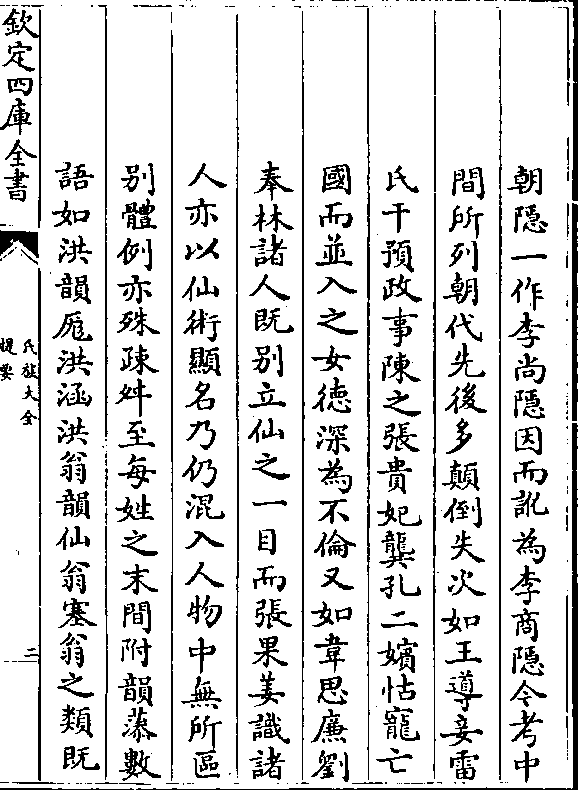 朝隱一作李尚隱因而訛為李商隱今考中
間所列朝代先後多顛倒失次如王導妾雷
氏干預政事陳之張貴妃龔孔二嬪怙寵亡
國而並入之女德深為不倫又如韋思廉劉
奉林諸人既别立仙之一目而張果姜識諸
人亦以仙術顯名乃仍混入人物中無所區
别體例亦殊疎舛至每姓之末間附韻藻數
語如洪韻厖洪涵洪翁韻仙翁塞翁之類既
欽定四庫全書
氏族大全
提要
三